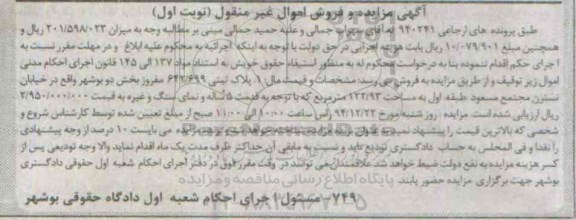 آگهی مزایده و فروش اموال غیر منقول (نوبت اول)
طبق پرونده های ارجاعی ۹۴۰۲۴۱ له آقای جمالی و علیه حمید جمالی مبنی بر مطالبه وجه به میزان ۲۰۱/۵۹۸/۰۲۳ ریال و
همچنین مبلغ ۱۰/۰۷۹/۹۰۱ ریال بابت هزینه اجرایی در حق دولت با توجه به اینکه اجرائیه به محکوم علیه ابلاغ و در مهلت مقرر نسبت به
اجرای حکم اقدام ننموده بنا به درخواست محکوم له به منظور استیفاء حقوق خویش به استناد مواد ۱۳۷ الی ۱۴۵ قانون اجرای احکام مدنی
اموال زیر توقیف و از طریق مزایده به فروش می رسد: مشخصات و قیمت مال: ۱. پلاک ثبتی ۶۴۲/۶۹۹ مفروز بخش دو بوشهر واقع در خیابان
نسترن مجتمع مسعود طبقه اول به مساحت ۱۲۲/۹۳ مترمربع که با توجه به قدمت ۵ ساله و نمای سنگ و غیره به قیمت ۲/۹۵۰/۰۰۰/۰۰۰
ریال ارزیابی شده است مزایده روز شنبه مورخ ۹۴/۱۲/۲۲ رأس ساعت ۱۰/۰۰ الی ۱۱/۰۰ صبح از مبلغ تعیین شده توسط کارشناس شروع و
شخصی که بالاترین قیمت را پیشنهاد نمید به عنوان برنده مزایده می بایست ۱۰ درصد از وجه پیشنهادی
را نقدا و فی المجلس به حساب دادگستری تودیع نماید و نسبت به مابقی آن حداکثر ظرف مدت یک ماه اقدام نماید والا وجه تودیعی پس از
کسر هزینه مزایده به نفع دولت ضبط خواهد شد علاقمندان می توانند در وقت مقرر فوق در دفتر اجرای احکام شعبه اول حقوقی دادگستری
بوشهر جهت برگزاری مزایده حضور یابند پایگاه اطلاع رسانی مناقصه و مزایده
۷۴۹- مسئول اجرای احکام شعبه اول دادگاه حقوقی بوشهر